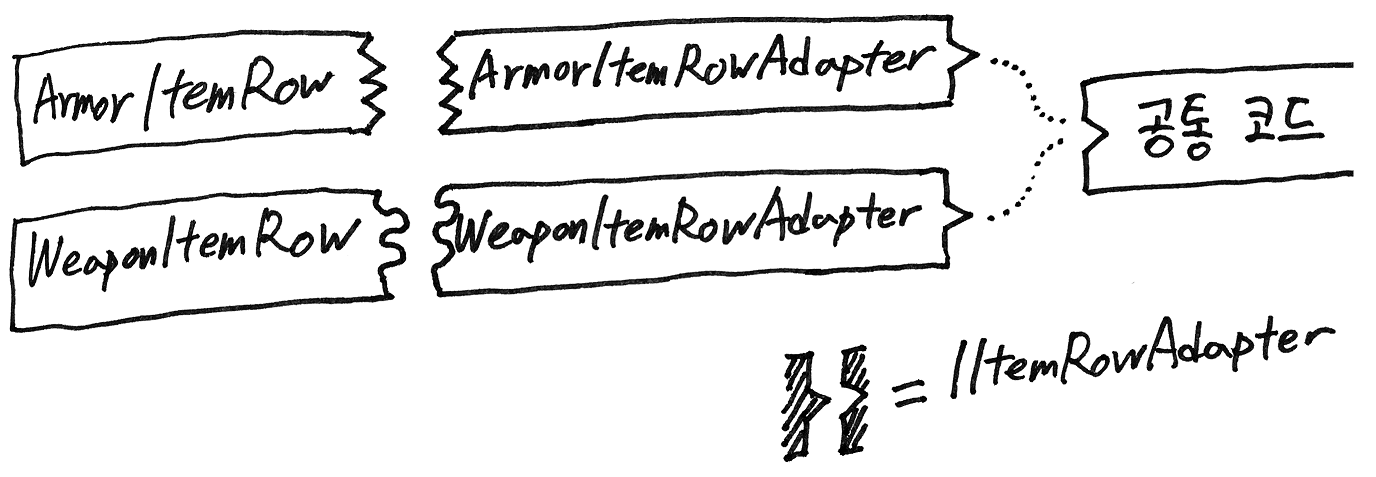 ArmorItemRow
ArmorItemRowAdapter
공통 코드
WeaponItemRow
WeaponItemRowAdapter
= IItemRowAdapter